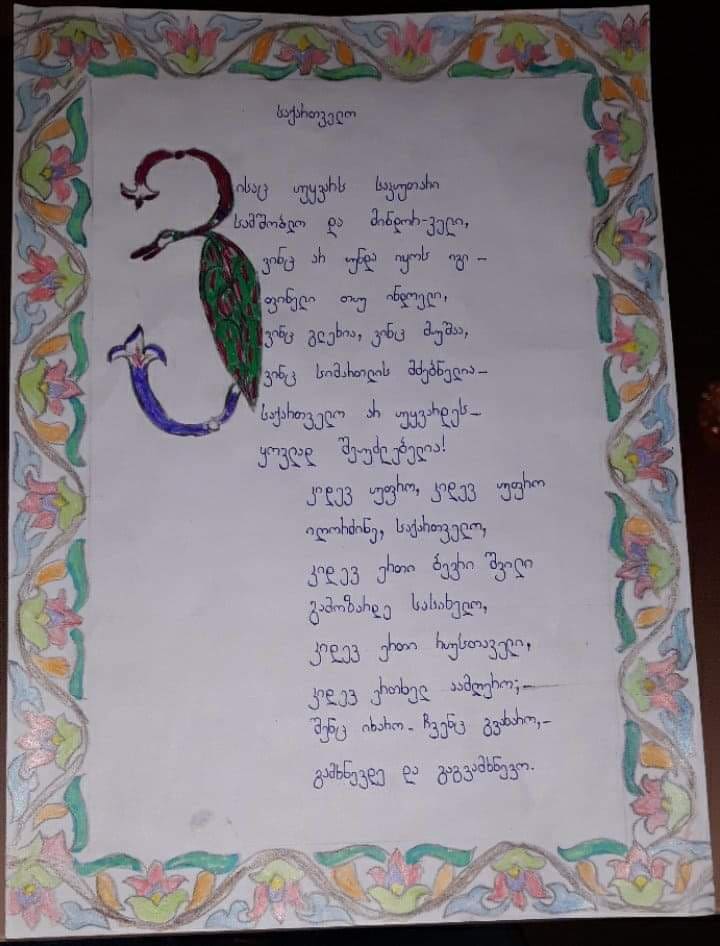 საქართველო
ვისაც უყვარს საკუთარი
სამშობლო და მინდორ-ველი,
ვინც არ უნდა იყოს იგი –
ფინელი თუ ინდოელი,
ვინც გლეხია, ვინც მუშაა,
ვინც სიმართლის მძებნელია –
საქართველო არ უყვარდეს –
ყოვლად შეუძლებელია!
კიდევ უფრო, კიდევ უფრო
იღორძინე, საქართველო,
კიდევ ერთი ბევრი შვილი
გამოზარდე სასახელო,
კიდევ ერთი რუსთაველი,
კიდევ ერთხელ აამღერო; –
შენც იხარო - ჩვენც გვახარო, –
გამხნევდე და გაგვამხნევო.